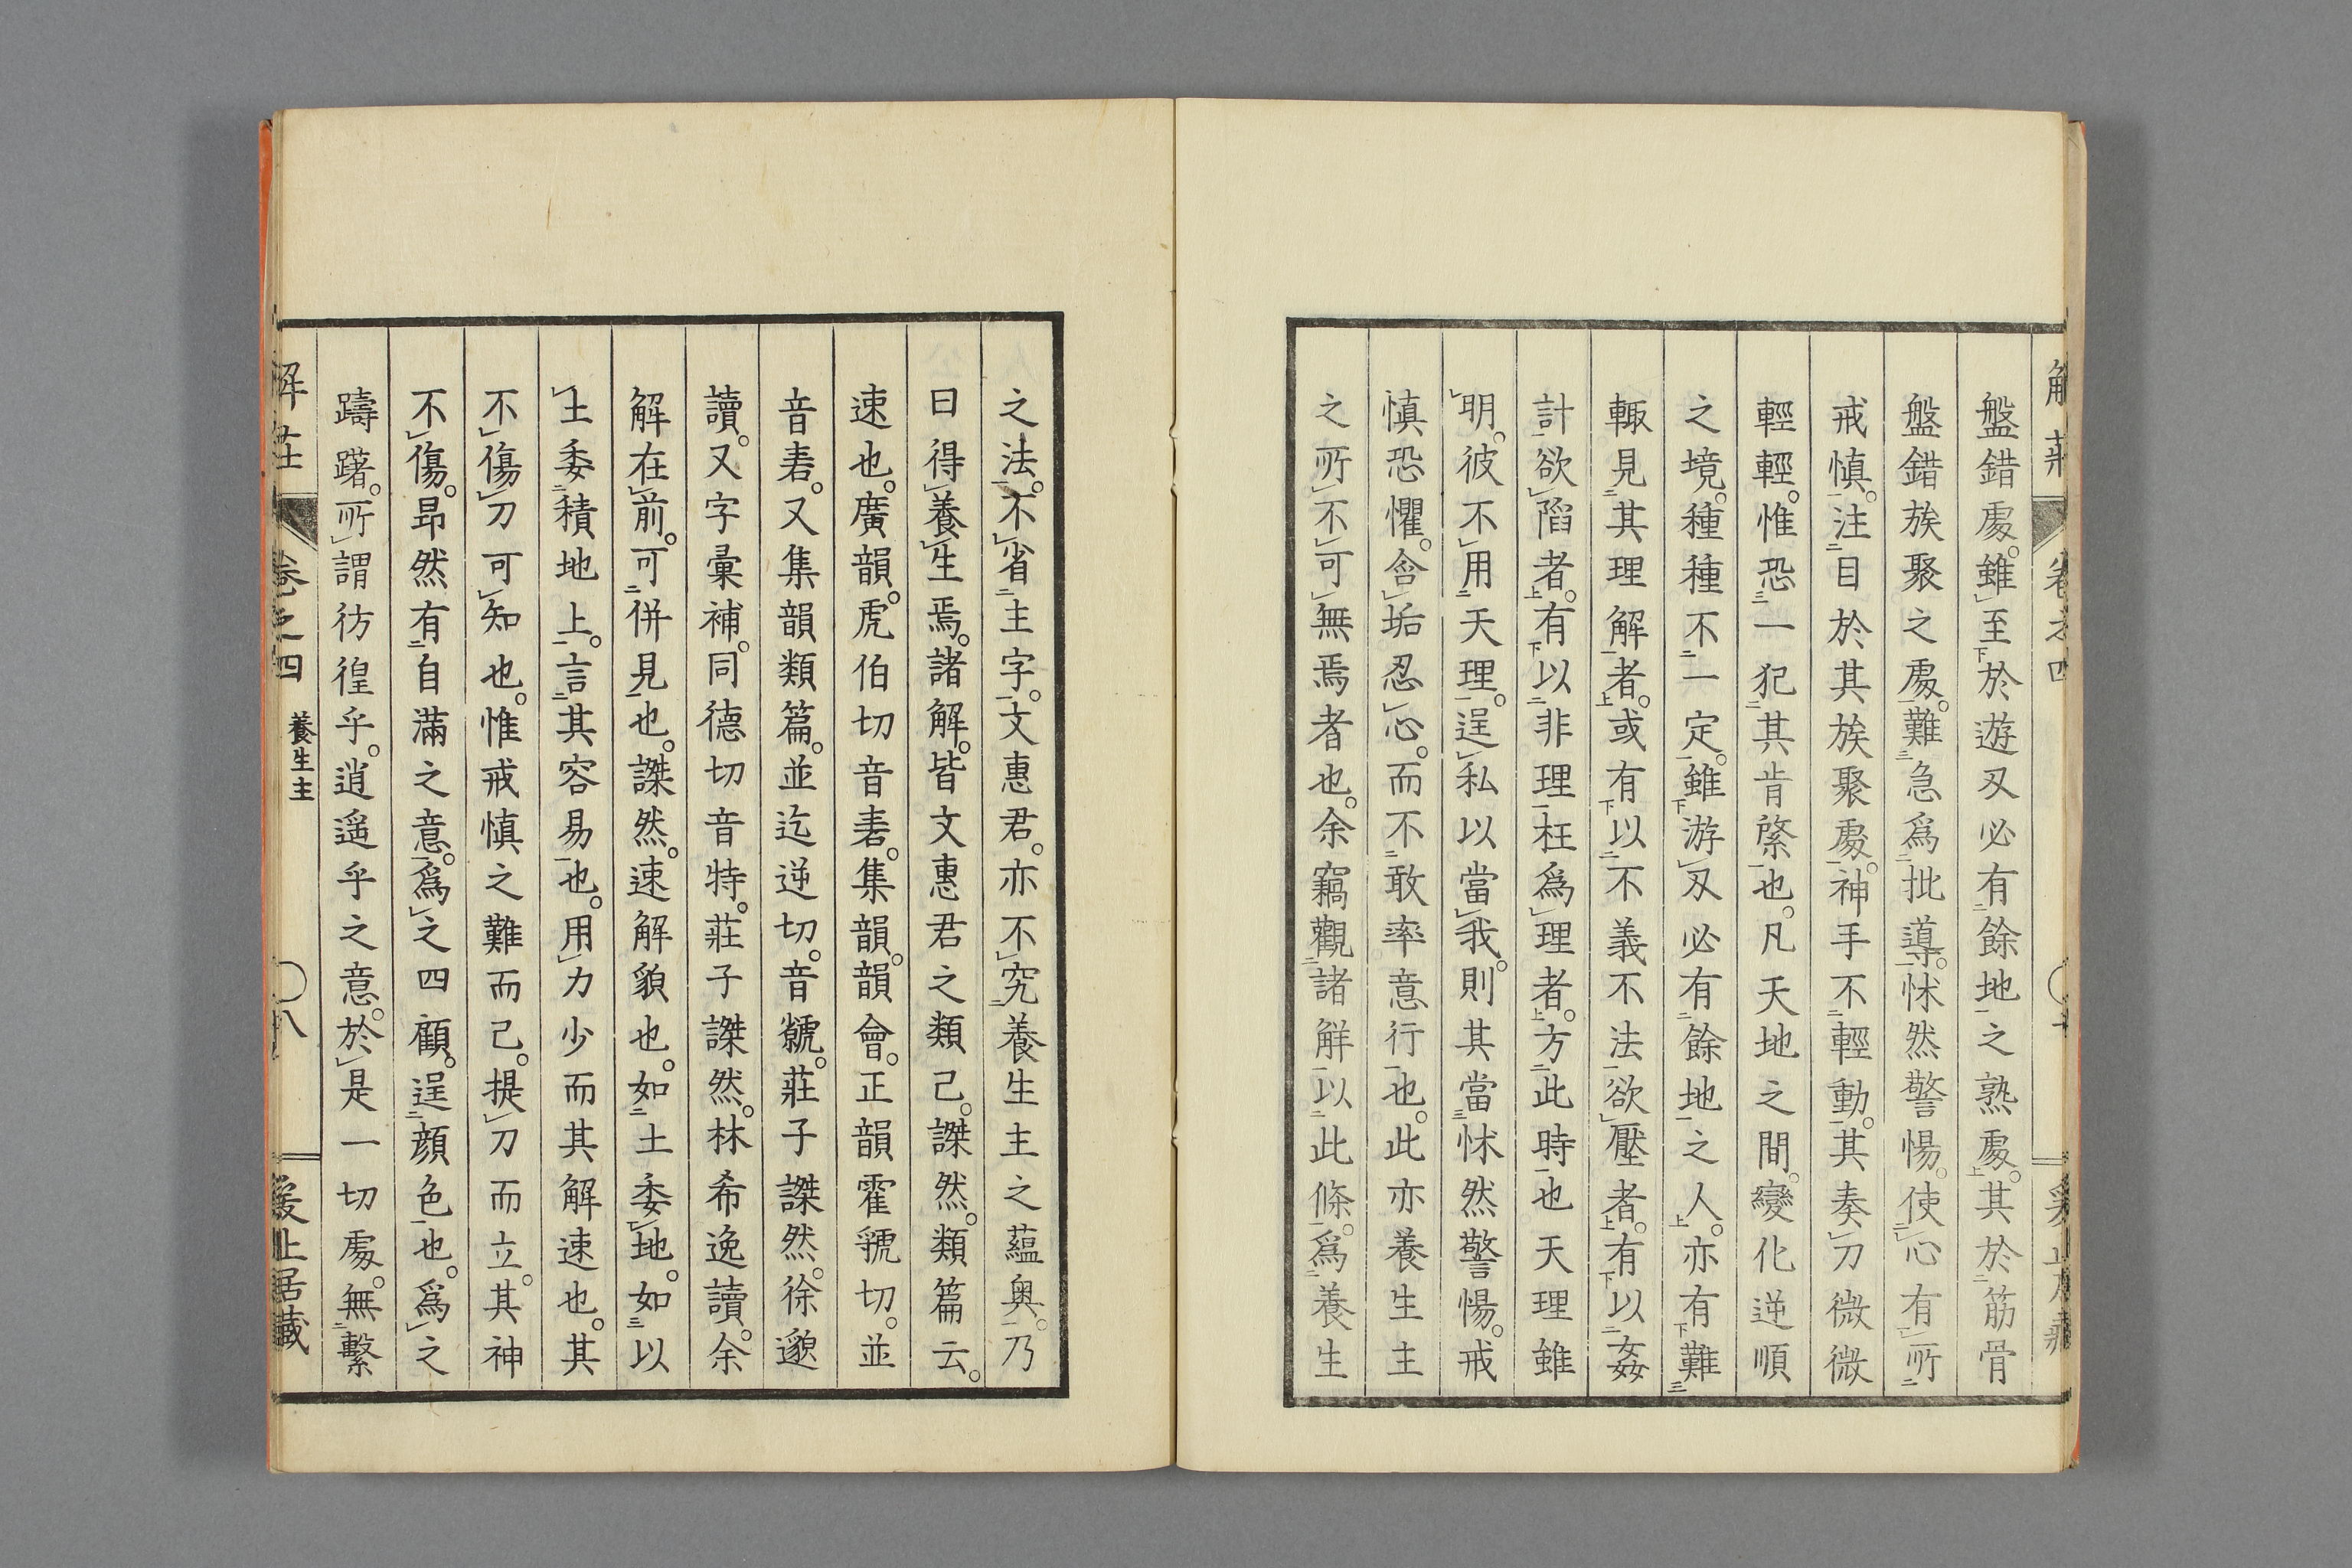 盤錯處。雖至於遊刃必有餘地之熟處。其於筋骨
盤錯族聚之處。難急爲批導。怵然警惕。使心有所
戒慎。注目於其族聚處。神手不輕動。其奏刀微微
輕輕。惟恐一犯其肯綮也。凡天地之間。變化逆順
之境。種種不一定。雖游刃必有餘地之人。亦有難
輙見其理解者。或有以不義不法欲壓者。有以姦
計欲陷者。有以非理枉爲理者。方此時也天理雖
明。彼不用天理。逞私以當我。則其當怵然警惕。戒
慎恐懼。含垢忍心。而不敢率意行也。此亦養生主
之所不可無焉者也。余竊觀諸解以此條。爲養生
之法。不省主字。文惠君。亦不究養生主之蘊奧。乃
曰得養生焉。諸解。皆文惠君之類已。謋然。類篇云。
速也。廣韻。虎伯切音砉。集韻。韻會。正韻霍虢切。並
音砉。又集韻類篇。並迄逆切。音虩。莊子謋然。徐邈
讀。又字彙補。同德切音特。莊子謋然。林希逸讀。余
解在前。可併見也。謋然。速解貌也。如土委地。如以
土委積地上。言其容易也。用力少而其解速也。其
不傷刀可知也。惟戒慎之難而已。提刀而立。其神
不傷。昂然有自滿之意。爲之四顧。逞顏色也。爲之
躊躇。所謂彷徨乎。逍遥乎之意。於是一切處。無繫
解莊 卷之四 養生主 〇八 爰止居藏